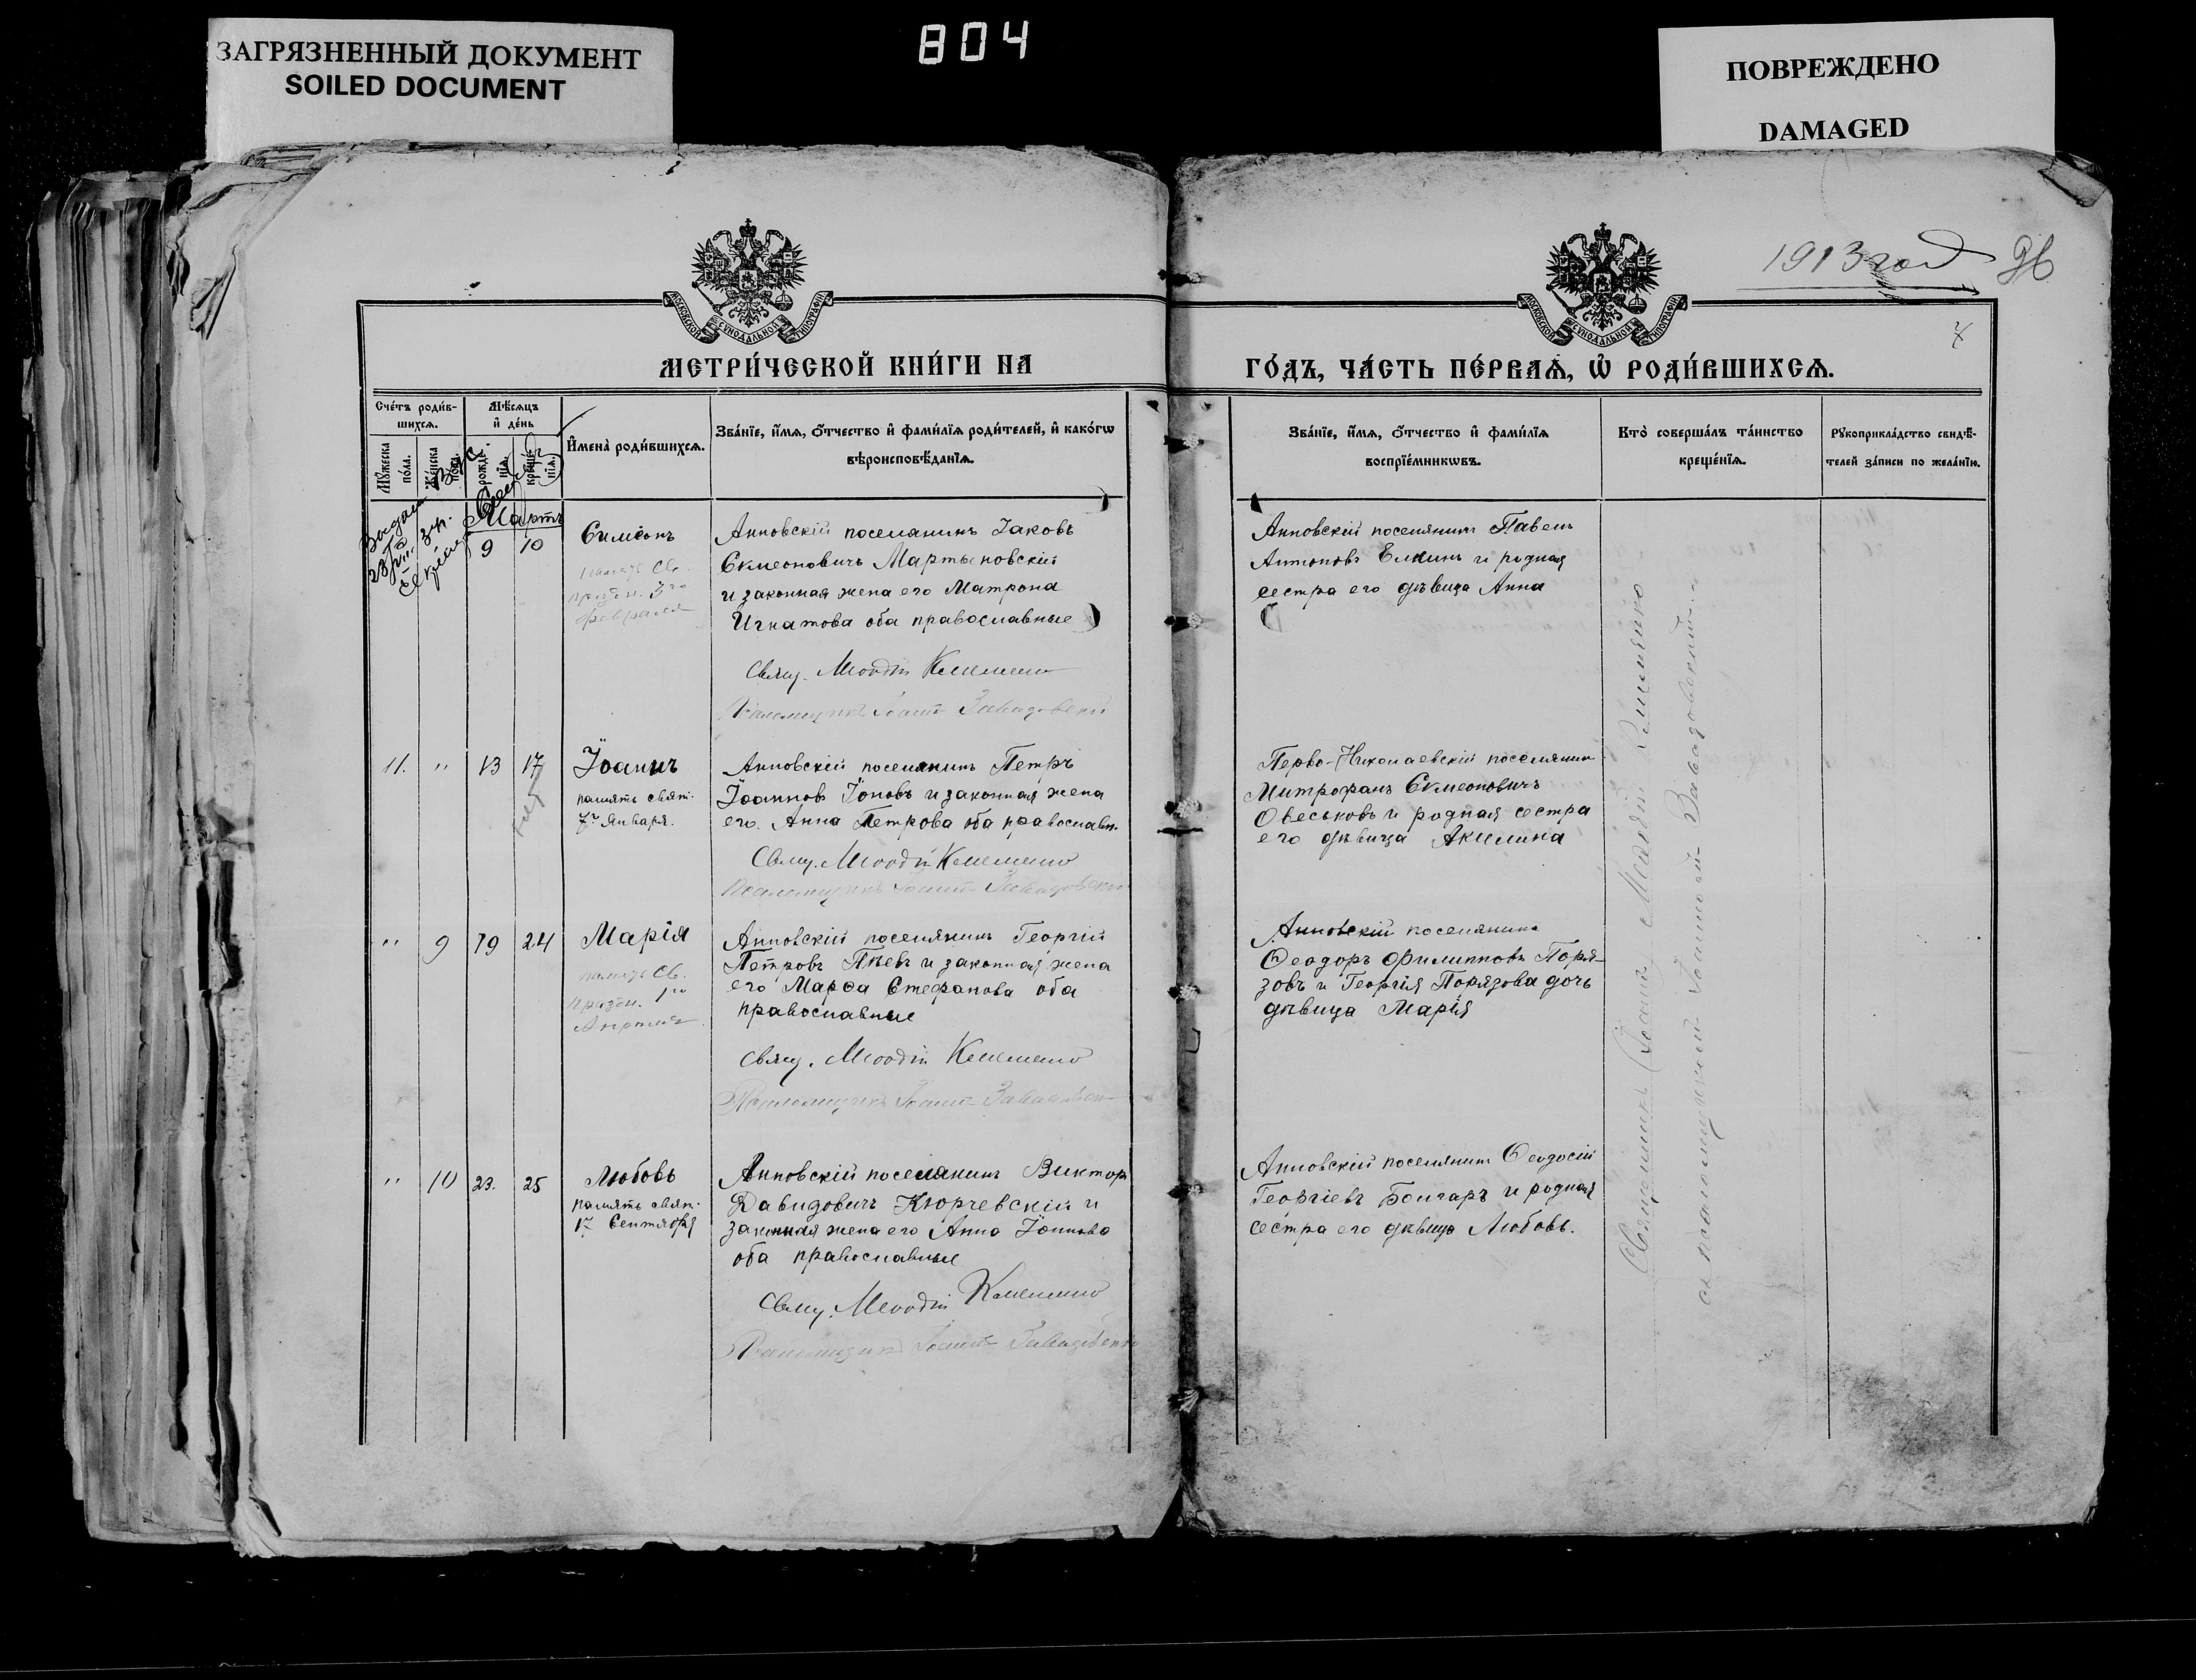 ЗАГРЯЗНЕННЫЙ ДОКУМЕНТ
SOILED DOCUMENT
804
ПОВРЕЖДЕНО
DAMAGED
1913 год
МОСКОВСКОЙ СѴНОДАЛЬНОЙ ТИПОГРАФІИ
МОСКОВСКОЙ СѴНОДАЛЬНОЙ ТИПОГРАФІИ
МЕТРИ́ЧЕСКОЙ КНИ́ГИ НА
ГО́ДЪ, ЧА́СТЬ ПЕ́РВАѦ, Ѡ҆ РОДИ́ВШИХСѦ.
Сче́тъ роди́в-
шихсѧ.
Мꙋ́жеска
по́ла.
Же́нска
по́ла.
Мѣ́сѧцъ
и҆ де́нь
рожде-
нїѧ.
креще-
нїѧ.
И҆мена̀ роди́вшихсѧ.
Зва́нїе, и҆́мѧ, ѻ҆́тчество и҆ фами́лїѧ роди́телей, и҆ како́гѡ
вѣроисповѣ́данїѧ.
Зва́нїе, и҆́мѧ, ѻ҆́тчество и҆ фами́лїѧ
воспрїе́мникѡвъ.
Кто̀ соверша́лъ та́инство
креще́нїѧ.
Рꙋкоприкла́дство свидѣ́-
телей за́писи по жела́нїю.
Мартъ
9 10
Симеонъ
память св.
праздн. 3го
февраля
Анновскій поселянинъ Іаковъ
Симеоновичъ Мартыновскій
и законная жена его Матрона
Игнатова оба православные
Свящ. Меѳодій Клименко
Псаломщикъ Іоаннъ Завадовскій
Анновскій поселянинъ Павелъ
Антоновъ Елкинъ и родная
сестра его дѣвица Анна
11. " 13 17
Іоаннъ
память свят.
7го Января.
Анновскій поселянинъ Петръ
Іоанновъ Іоновъ и законная жена
его Анна Петрова оба православн.
Свящ. Меѳодій Клименко
Псаломщикъ Іоаннъ Завадовскій
Перво-Николаевскій поселянин
Митрофанъ Симеоновичъ
Овеськовъ и родная сестра
его дѣвица Акилина
" 9 19 24
Марія
память св.
праздн. 1го
Апрѣля
Анновскій поселянинъ Георгій
Петровъ Пѣевъ и законная жена
его Марѳа Стефанова оба
православные
Свящ. Меѳодій Клименко
Псаломщикъ Іоаннъ Завадовскій
Анновскій поселянинъ
Ѳеодоръ Филипповъ Поря-
зовъ и Георгія Порязова дочь
дѣвица Марія
" 10 23. 25
Любовь
память свят.
17 Сентября
Анновскій поселянинъ Викторъ
Давидовичъ Кюрчевскій и
законная жена его Анна Іоннова
оба православные
Свящ. Меѳодій Клименко
Псаломщикъ Іоаннъ Завадовскій
Анновскій поселянинъ Ѳеодосій
Георгіевъ Болгаръ и родная
сестра его дѣвица Любовь.
Священникъ Меѳодій Клименко
съ псаломщикомъ Іоанномъ Завадовскимъ